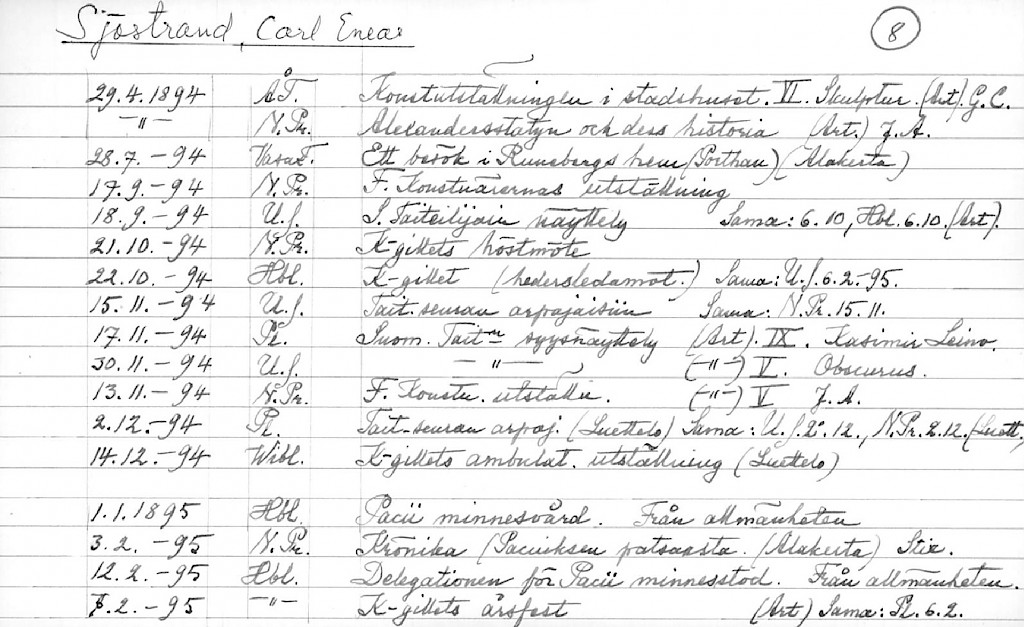 Sjöstrand, Carl Eneas 8
29.4.1894 Å.T. Konstutställningen i stadshuset. VI. Skulptur. (Art). G.C.
-"- N.Pr. Alexandersstatyn och dess historia (Art.) J.A.
28.7.-94 VasaT. Ett besök i Runebergs hem (Porthan) (Alakerta)
17.9.-94 N.Pr. F. Konstnärernas utställning
18.9.-94 U.S. S. Taiteilijain näyttely Sama: 6.10, Hbl. 6.10. (Art).
21.10.-94 N.Pr. K-gillets höstmöte
22.10.-94 Hbl. K-gillet (hedersledamot.) Sama: U.S. 6.2.-95.
15.11.-94 U.S. Tait.seuran arpajaisiin Sama: N.Pr. 15.11.
17.11.-94 Pl. Suom. Tait. syysnäyttely (Art). IX. Kasimir Leino.
30.11.-94 U.S. -"- (-"-) V. Obscurus.
13.11.-94 N.Pr. F. Konstn. utställn. (-"-) V J.A.
2.12.-94 Pl. Tait-seuran arpaj. (Luettelo) Sama: U.S. 2.12., N.Pr. 2.12. (Luett.
14.12.-94 Wibl. K-gillets ambulat. utställning (Luettelo)
1.1.1895 Hbl. Pacii minnesvård. Från allmänheten
3.2.-95 N.Pr. Krönika (Paciuksen patsaasta. (Alakerta) Stix.
12.2.-95 Hbl. Delegationen för Pacii minnesstod. Från allmänheten.
.2.-95 -"- K-gillets årsfest (Art) Sama: Pl. 6.2.